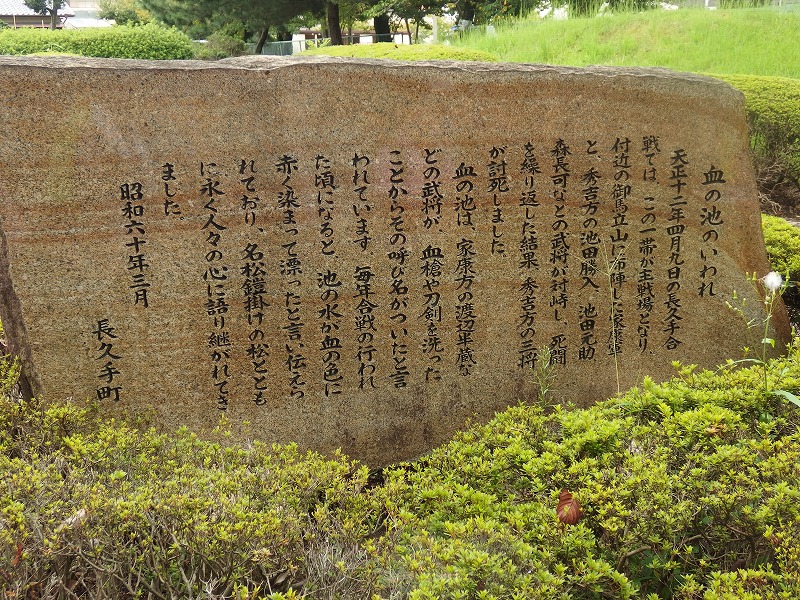 血の池のいわれ
天正十二年四月九日の長久手合
戦では、この一帯が主戦場となり、
付近の御馬立山に布陣した家康軍
と、秀吉方の池田勝入、池田元助、
森長可などの武将が対峙し、死闘
を繰り返した結果、秀吉方の三将
が討死しました。
血の池は、家康方の渡辺半蔵な
どの武将が、血槍や刀剣を洗った
ことからその呼び名がついたと言
われています。毎年合戦の行われ
た頃になると、池の水が血の色に
赤く染まって漂ったと言い伝えら
れており、名松鎧掛けの松ととも
に永く人々の心に語り継がれてき
ました。
昭和六十年三月
長久手町